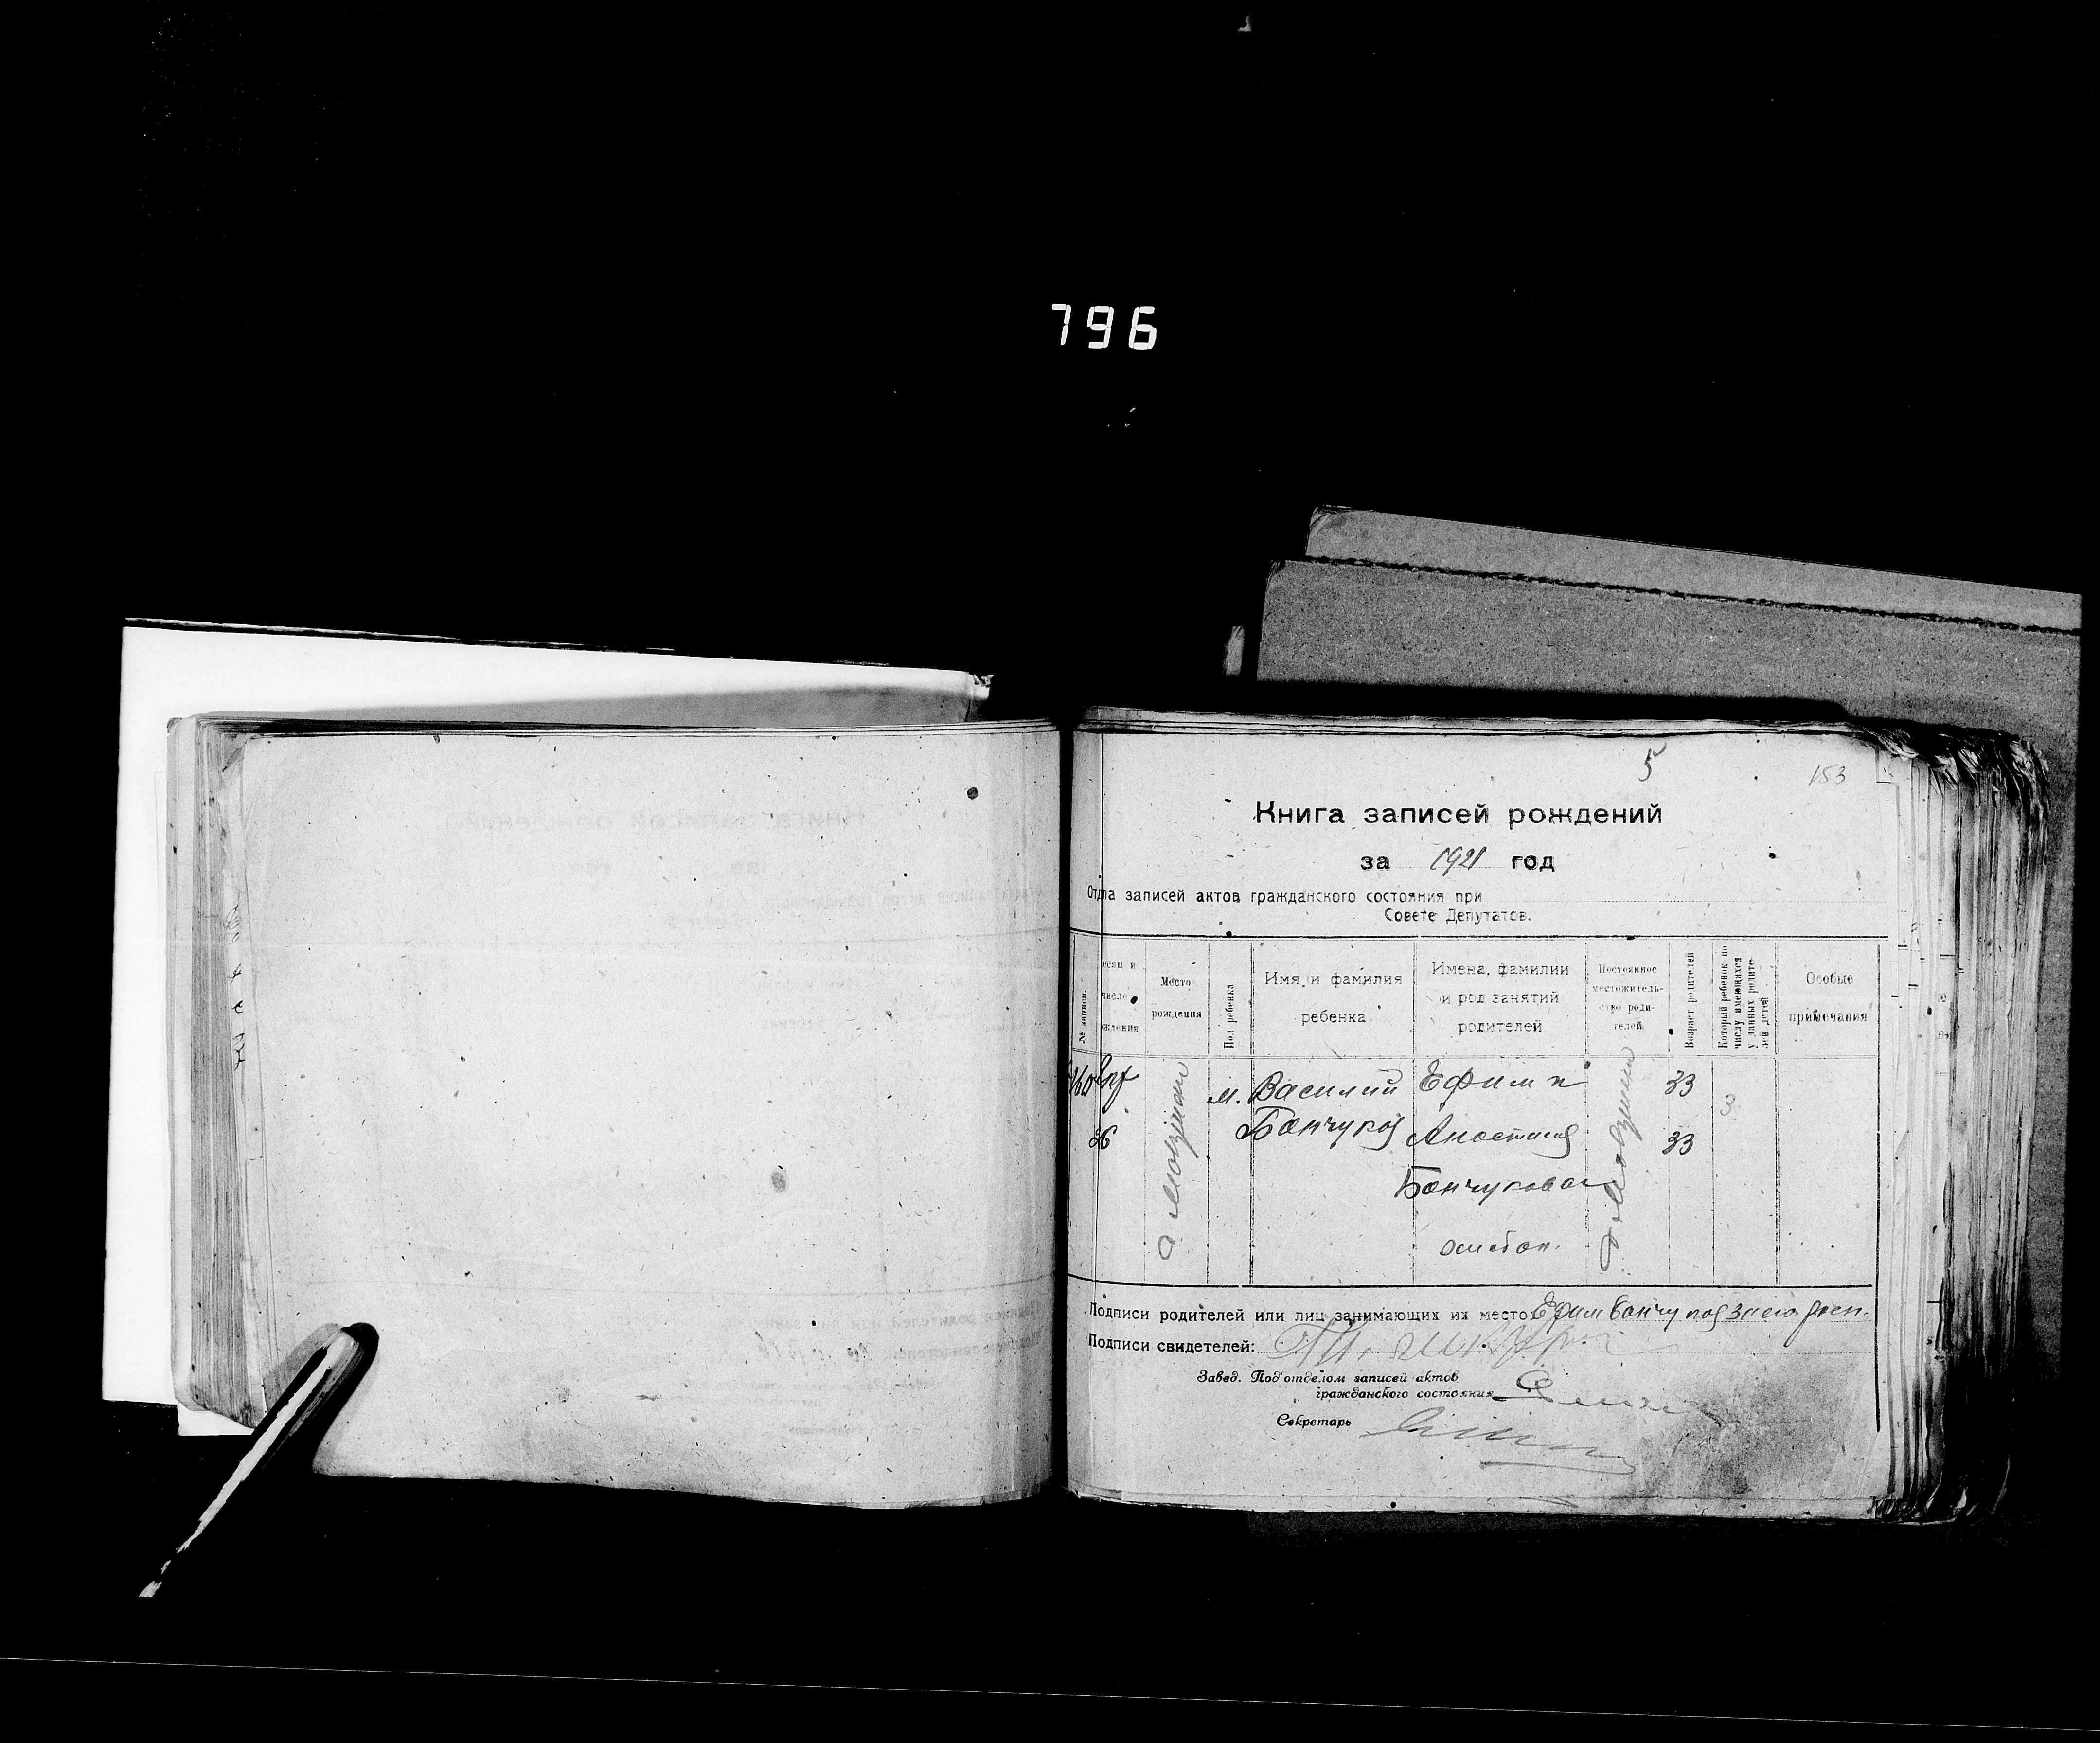 796
5
153
Книга записей рождений
за 1921 год
Отдла записей актов гражданского состояния при
Совете Депутатов.
№ записи.
есяц и
число
ждения
Место
рождения
Пол ребенка
Имя, и фамилия
ребенка
Имена, фамилии
и род занятий
родителей
Постоянное
местожитель-
ство роди-
телей
Возраст родителей
Который ребенок по
числу имеющихся
у данных родите-
лей детей
Особые
примечания
м. Василий Ефим и 33 3
26 Банчуков Анастасия 33
Банчукова
Подписи родителей или лиц занимающих их место: Ефим Банчуков
Подписи свидетелей:
Завед. Подотделом записей актов
гражданского состояния
Секретарь